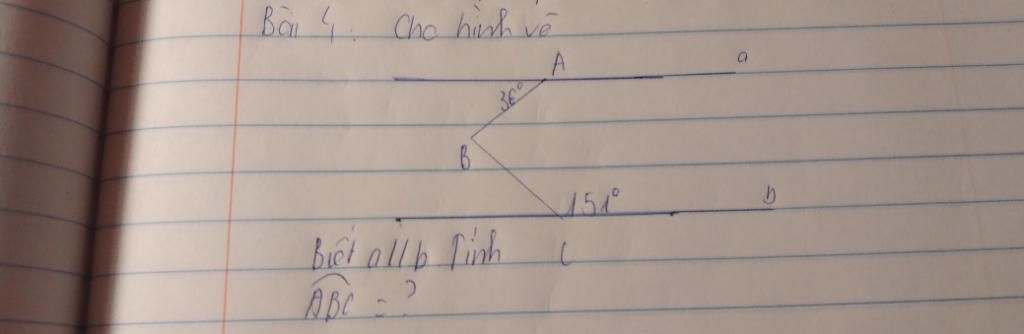 Bài 4. Cho hình vẽ
A a
36°
B
151° b
Biết a//b Tính C
ABC = ?